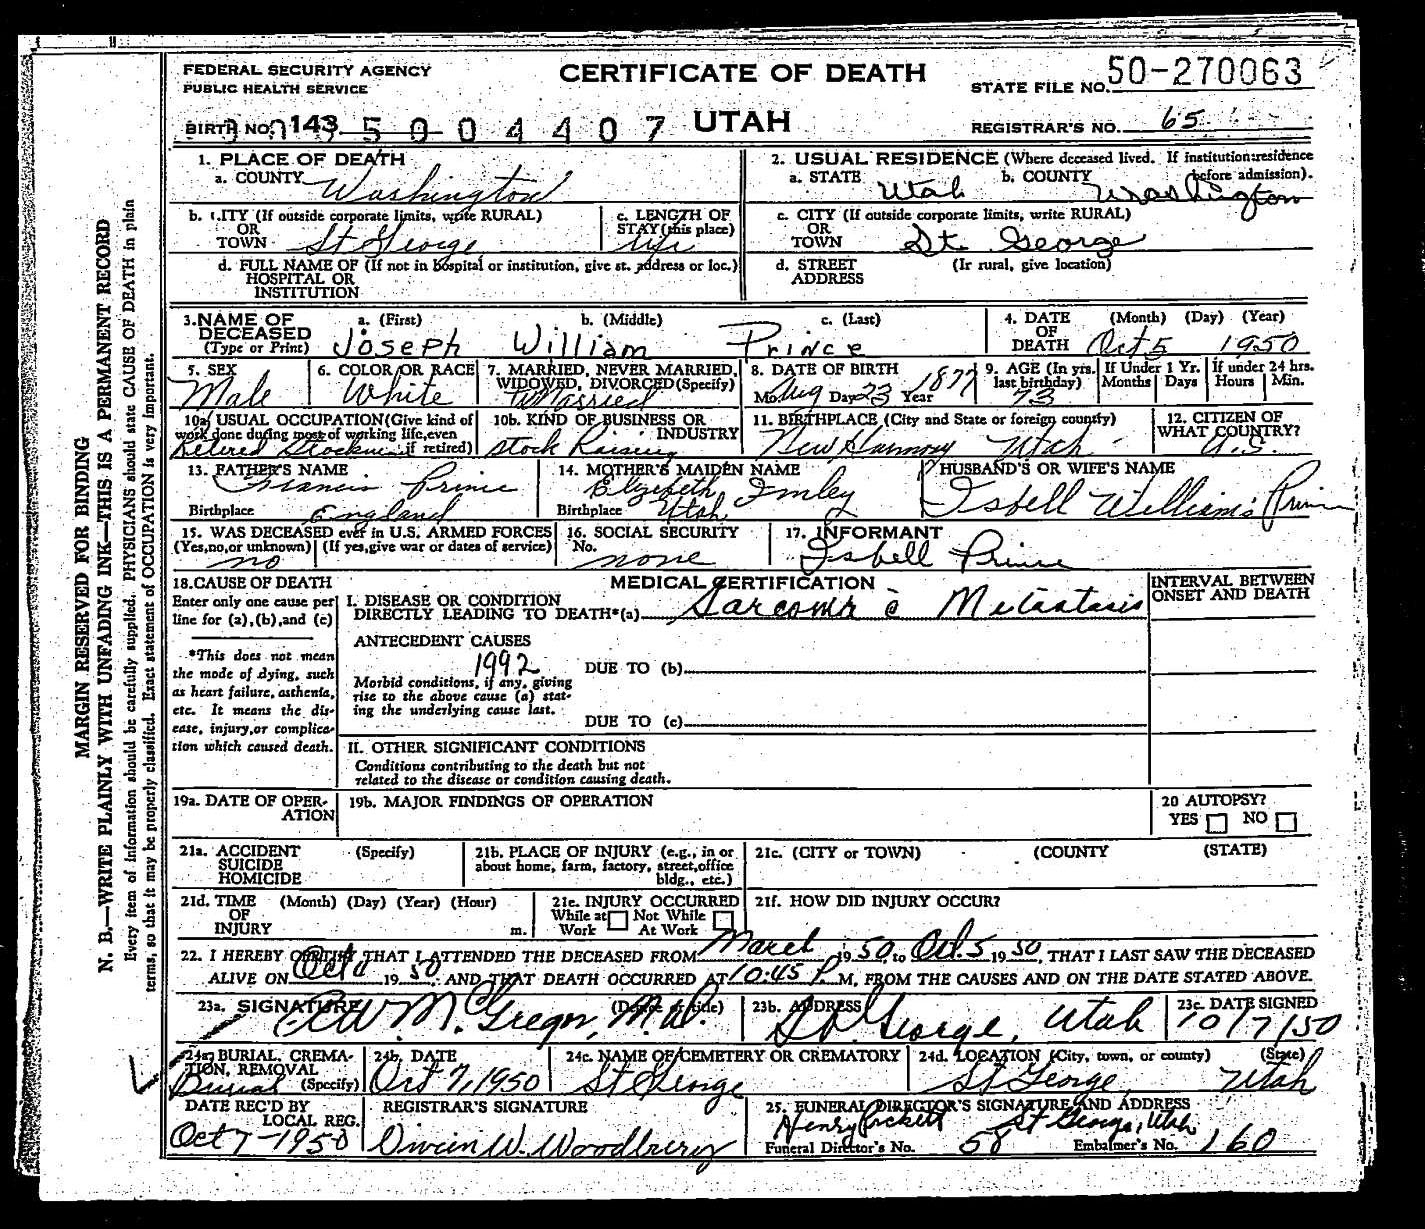 FEDERAL SECURITY AGENCY
PUBLIC HEALTH SERVICE
CERTIFICATE OF DEATH
UTAH
STATE FILE NO. 50-270063
BIRTH NO. 143 5004407
REGISTRAR'S NO. 65
1. PLACE OF DEATH
a. COUNTY Washington
2. USUAL RESIDENCE (Where deceased lived. If institution:residence before admission).
a. STATE Utah b. COUNTY Washington
b. CITY (If outside corporate limits, write RURAL)
OR
TOWN St George
c. LENGTH OF
STAY (this place)
life
c. CITY (If outside corporate limits, write RURAL)
OR
TOWN St. George
d. FULL NAME OF (If not in hospital or institution, give st. address or loc.)
HOSPITAL OR
INSTITUTION
d. STREET (Ir rural, give location)
ADDRESS
3. NAME OF DECEASED
(Type or Print)
a. (First) b. (Middle) c. (Last)
Joseph William Prince
4. DATE OF DEATH (Month) (Day) (Year)
Oct 5 1950
5. SEX
Male
6. COLOR OR RACE
White
7. MARRIED, NEVER MARRIED,
WIDOWED, DIVORCED (Specify)
Married
8. DATE OF BIRTH
Mo. Aug Day 23 Year 1877
9. AGE (In yrs. last birthday)
73
If Under 1 Yr.
Months Days
If under 24 hrs.
Hours Min.
10a. USUAL OCCUPATION (Give kind of
work done during most of working life, even
if retired)
Retired Stockman
10b. KIND OF BUSINESS OR
INDUSTRY
Stock Raising
11. BIRTHPLACE (City and State or foreign country)
New Harmony Utah
12. CITIZEN OF
WHAT COUNTRY?
U.S.
13. FATHER'S NAME
Francis Prince
Birthplace England
14. MOTHER'S MAIDEN NAME
Elizabeth Imley
Birthplace Utah
HUSBAND'S OR WIFE'S NAME
Isbell Williams Prince
15. WAS DECEASED ever in U.S. ARMED FORCES
(Yes,no,or unknown) (If yes,give war or dates of service)
no
16. SOCIAL SECURITY
No.
none
17. INFORMANT
Isbell Prince
18. CAUSE OF DEATH
Enter only one cause per
line for (a),(b),and (c)
*This does not mean
the mode of dying, such
as heart failure, asthenia,
etc. It means the dis-
ease, injury,or complica-
tion which caused death.
MEDICAL CERTIFICATION
INTERVAL BETWEEN
ONSET AND DEATH
I. DISEASE OR CONDITION
DIRECTLY LEADING TO DEATH*(a) Sarcoma c̄ Metastasis
ANTECEDENT CAUSES
1992
DUE TO (b)
Morbid conditions, if any, giving
rise to the above cause (a) stat-
ing the underlying cause last.
DUE TO (c)
II. OTHER SIGNIFICANT CONDITIONS
Conditions contributing to the death but not
related to the disease or condition causing death.
19a. DATE OF OPER-
ATION
19b. MAJOR FINDINGS OF OPERATION
20 AUTOPSY?
YES NO
21a. ACCIDENT (Specify)
SUICIDE
HOMICIDE
21b. PLACE OF INJURY (e.g., in or
about home, farm, factory, street,office
bldg., etc.)
21c. (CITY or TOWN) (COUNTY) (STATE)
21d. TIME (Month) (Day) (Year) (Hour)
OF
INJURY m.
21e. INJURY OCCURRED
While at Not While
Work At Work
21f. HOW DID INJURY OCCUR?
22. I HEREBY CERTIFY THAT I ATTENDED THE DECEASED FROM March 1950, to Oct. 5 1950, THAT I LAST SAW THE DECEASED
ALIVE ON Oct 1950, AND THAT DEATH OCCURRED AT 10:45 P. M, FROM THE CAUSES AND ON THE DATE STATED ABOVE.
23a. SIGNATURE (Degree or title)
McGregor, M.D.
23b. ADDRESS
St George, Utah
23c. DATE SIGNED
10/7/50
24a. BURIAL, CREMA-
TION, REMOVAL
(Specify)
Burial
24b. DATE
Oct 7, 1950
24c. NAME OF CEMETERY OR CREMATORY
St George
24d. LOCATION (City, town, or county) (State)
St George, Utah
DATE REC'D BY
LOCAL REG.
Oct 7-1950
REGISTRAR'S SIGNATURE
W. Woodbury
25. FUNERAL DIRECTOR'S SIGNATURE AND ADDRESS
Henry Pickett St George, Utah
Funeral Director's No. 58 Embalmer's No. 160
MARGIN RESERVED FOR BINDING
N. B.—WRITE PLAINLY WITH UNFADING INK—THIS IS A PERMANENT RECORD
Every item of information should be carefully supplied. PHYSICIANS should state CAUSE OF DEATH in plain
terms, so that it may be properly classified. Exact statement of OCCUPATION is very important.